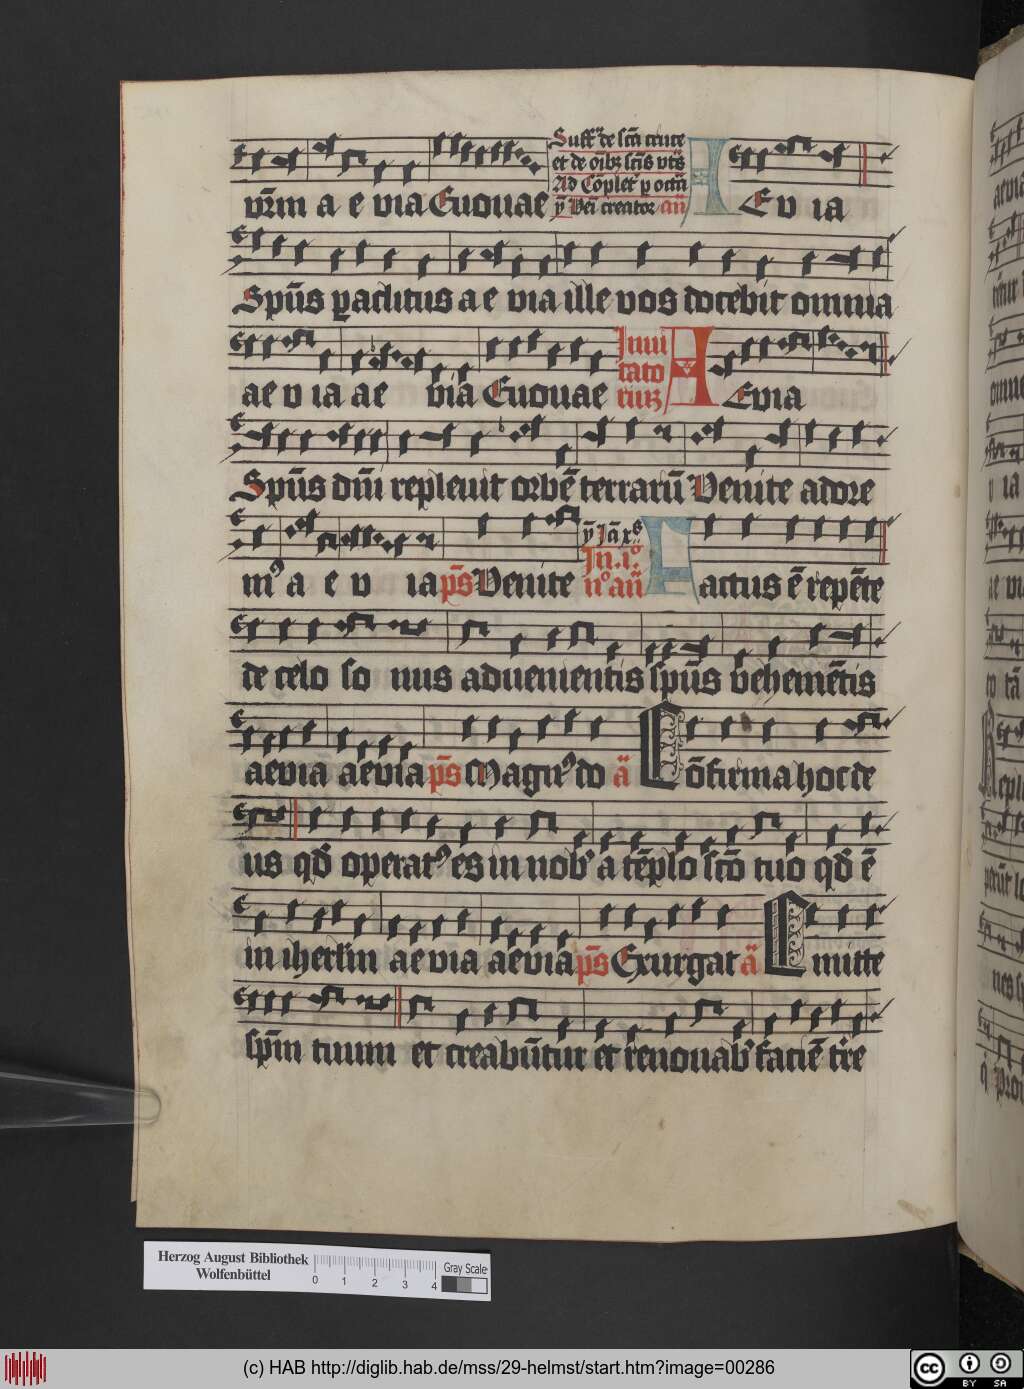 vr̄m a e via Euouae
Suffᵃ de sctā cruce
et de oībꝫ sctīs vtꝰ
Ad Cōplet' p octā
ꝟ Veī creator an̄
A Ev ia
Spūs paclitus a e via ille vos docebit omnia
ae v ia ae via Euouae
Inui
tato
riuꝫ
A Evia
Spūs dn̄i repleuit orbē terrarū Venite adore
mꝰ a e v ia ps̄ Venite
In .iᵒ
nᵒ an̄
Factus ē repēte
de celo so nus aduenientis spūs vehemētis
aevia aevia ps̄ Magnꝰ do a̅ Cōfirma hoc de
us qd̄ operatꝰ es in nob' a tēplo sctō tuo qd̄ ē
in iherl̄m ae via aevia ps̄ Exurgat a̅ Emitte
spm̄ tuum et creabūtur et renouab' faciē tr̄e
Herzog August Bibliothek
Wolfenbüttel
0 1 2 3 4
Gray Scale
(c) HAB http://diglib.hab.de/mss/29-helmst/start.htm?image=00286
cc BY SA